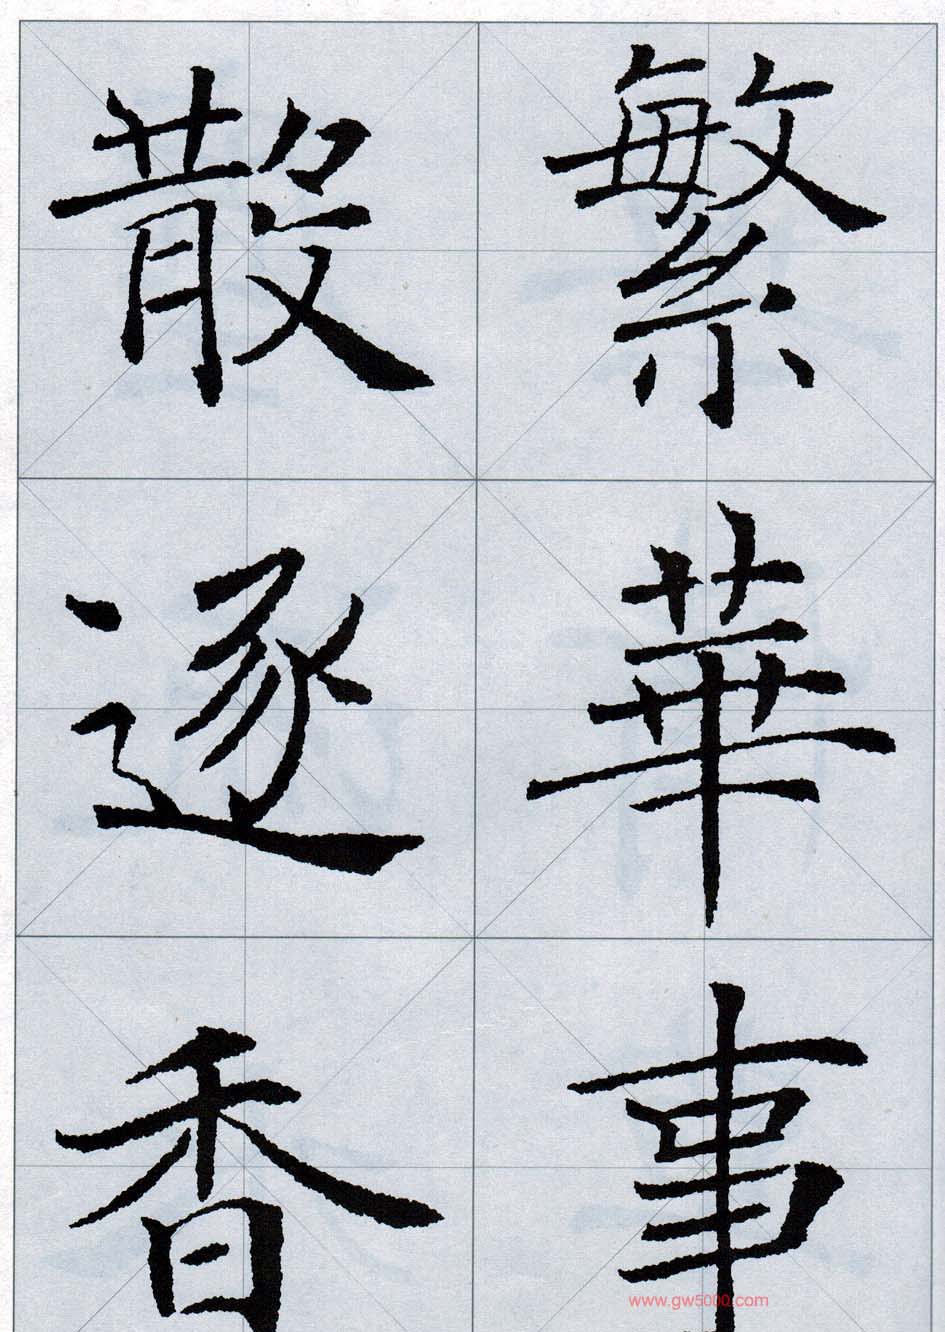 繁華事
散逐香
www.gw5000.com